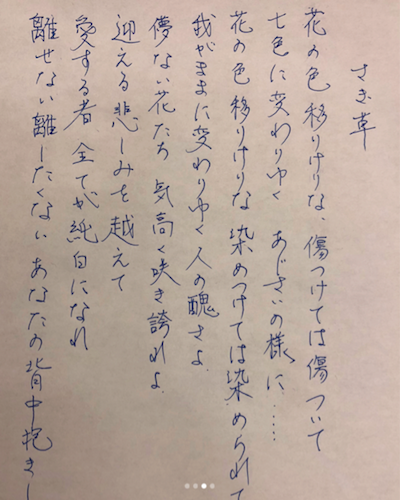 さき草
花の色移りけりな、傷つけては傷ついて
七色に変わりゆく あじさいの様に……
花の色移りけりな 染めつけては染められて
我がままに変わりゆく人の醜さよ
儚ない花たち 気高く咲き誇れよ
迎える悲しみを越えて
愛する者 全てが純白になれ
離せない離したくない あなたの背中抱きし